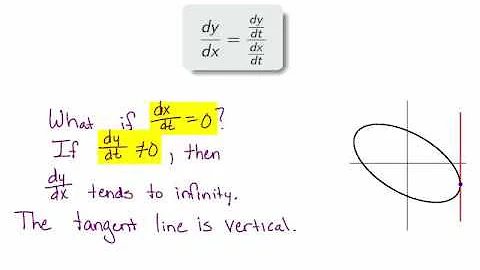 dy/dx = (dy/dt)/(dx/dt)
What if dx/dt = 0?
If dy/dt ≠ 0, then
dy/dx tends to infinity.
The tangent line is vertical.